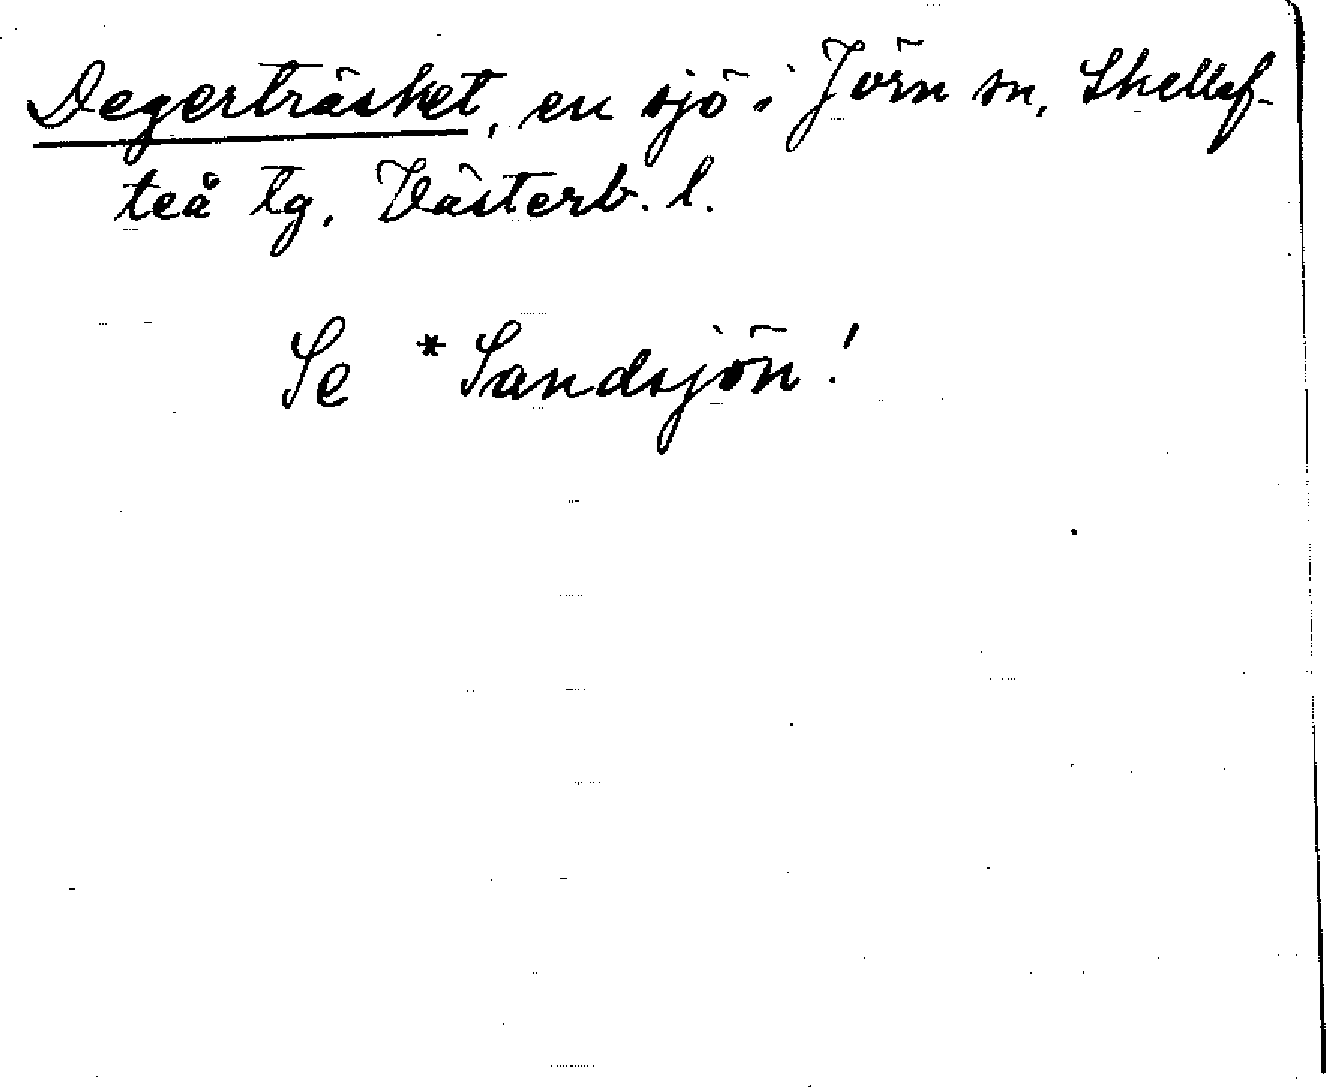 Degerträsket, en sjö i Jörn sn, Skellef-
teå tg, Västerb. l.
Se *Sandsjön!